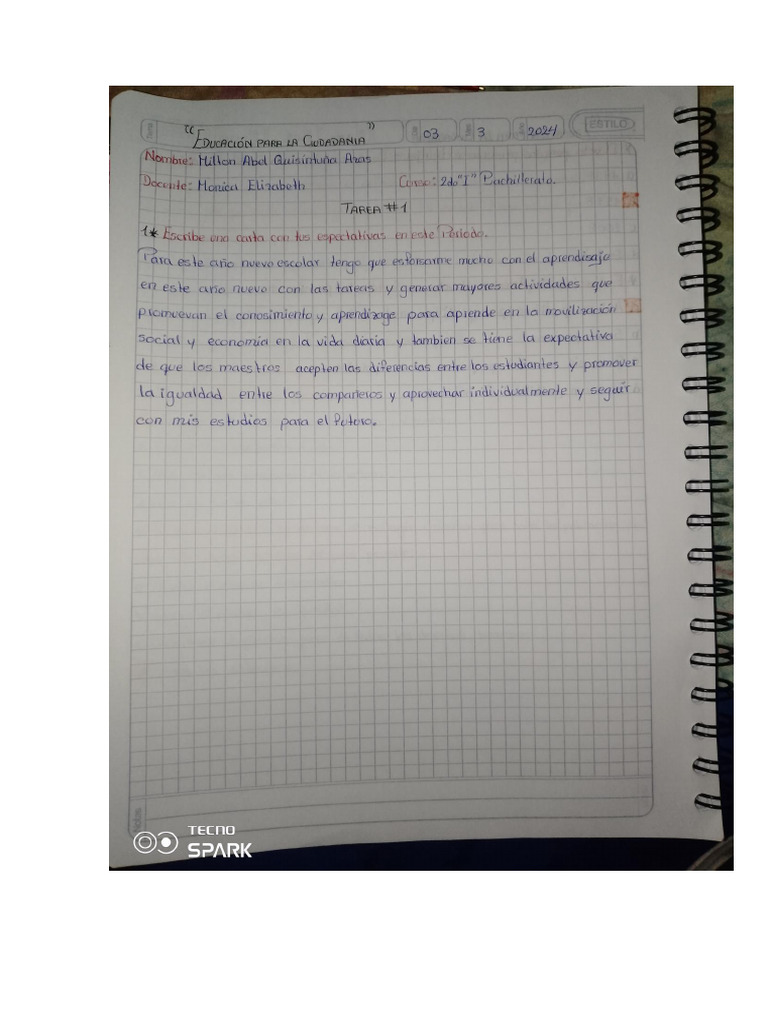 "Educación para la Ciudadania"
03 3 2024 ESTILO
Nombre: Milton Abel Quisintuña Azas
Docente: Monica Elizabeth Curso: 2do "I" Bachillerato.
Tarea #1
1* Escribe una carta con tus espectativas en este Período.
Para este año nuevo escolar tengo que esforsarme mucho con el aprendisaje
en este año nuevo con las tareas y generar mayores actividades que
promuevan el conosimiento y aprendizage para aprende en la movilización
social y economía en la vida diaria y tambien se tiene la expectativa
de que los maestros acepten las diferencias entre los estudiantes y promover
la igualdad entre los compañeros y aprovechar individualmente y seguir
con mis estudios para el Futuro.
Notas
TECNO
SPARK